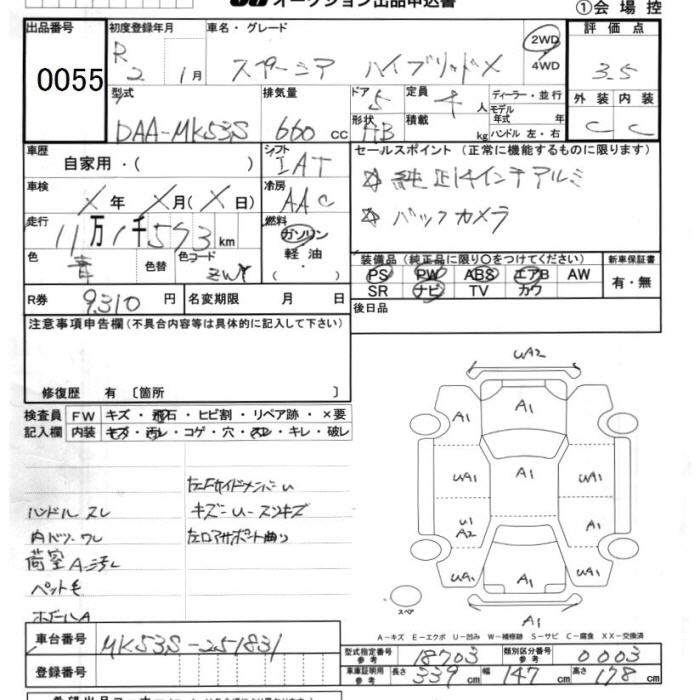 オークション出品申込書 ①会場控
出品番号 初度登録年月 車名・グレード 評価点
0055 R2 1月 スペーシア ハイブリッドX 2WD 4WD 3.5
型式 排気量 ドア 定員 ディーラー・並行 外装 内装
DAA-MK53S 660 cc 5 4人 モデル年式 年式 C C
形状 HB 積載 kg ハンドル 左・右
車歴 自家用・( ) シフト IAT セールスポイント (正常に機能するものに限ります)
車検 X年 X月(X日) 冷房 AAC ☆ 純正14インチアルミ
走行 11万1千573km 燃料 ガソリン ☆ バックカメラ
色 青 色替 色コード ZWY 軽油 ・( )
装備品 (純正品に限り〇をつけてください) 新車保証書
PS PW ABS エアB AW 有・無
SR ナビ TV カワ
R券 9,310 円 名変期限 月 日 後日品
注意事項申告欄 (不具合内容等は具体的に記入して下さい)
修復歴 有 〔箇所 〕
検査員 FW キズ・飛石・ヒビ割・リペア跡・×要
記入欄 内装 キズ・汚レ・コゲ・穴・スレ・キレ・破レ
左Fサイドメンバーu
ハンドルスレ キズU・スリキズ
内ドソワレ 左ロアサポート曲り
荷室A汚レ
ペット毛
ボドールA
UA2
A1 A1 A1
UA1 A1 UA1
U1 A2 A1
UA1 A1 UA1
スペア A1
A-キズ E-エクボ U-凹み W-補修跡 S-サビ C-腐食 XX-交換済
車台番号 MK53S-251831 型式指定番号 参考 18703 類別区分番号 参考 0003
登録番号 車庫証明用 参考 長さ 339 cm 幅 147 cm 高さ 178 cm